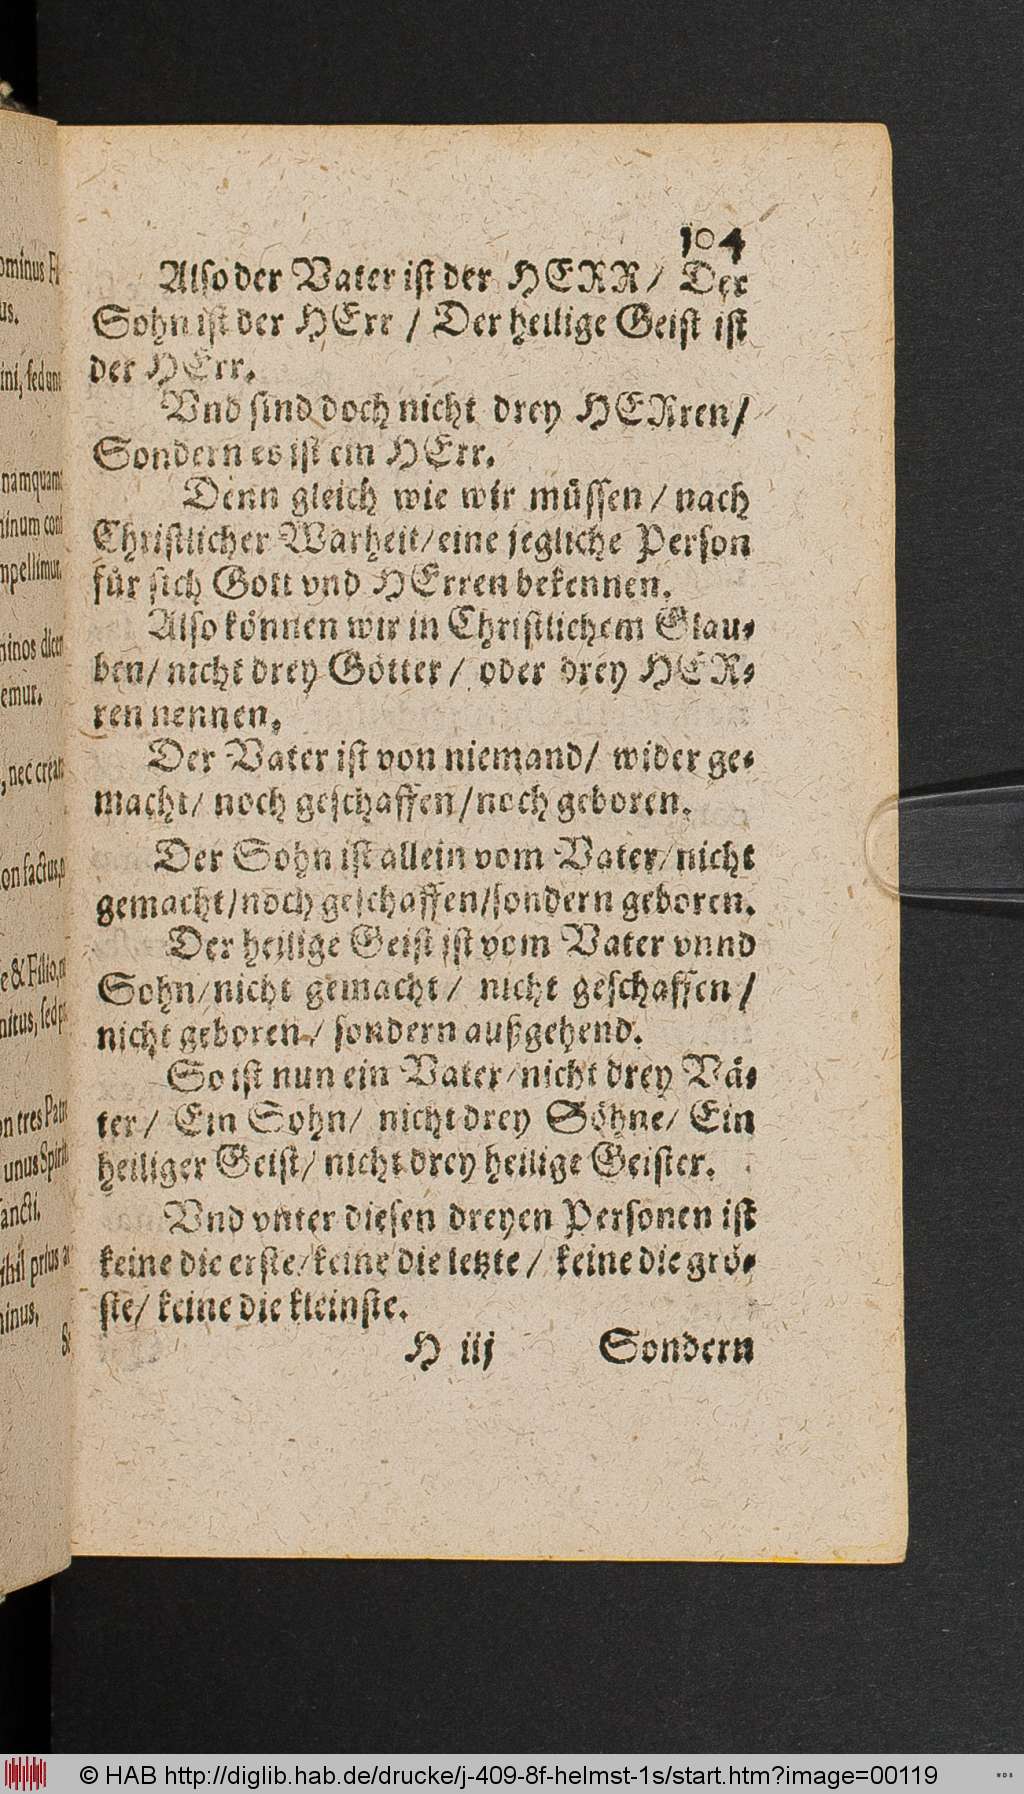 104
Also der Vater ist der HERR/ Der
Sohn ist der HErr / Der heilige Geist ist
der HErr.
Vnd sind doch nicht drey HERren/
Sondern es ist ein HErr.
Denn gleich wie wir müssen / nach
Christlicher Warheit/ eine jegliche Person
für sich Gott vnd HErren bekennen.
Also können wir in Christlichem Glau-
ben/ nicht drey Götter / oder drey HER-
ren nennen.
Der Vater ist von niemand/ wider ge-
macht/ noch geschaffen/ noch geboren.
Der Sohn ist allein vom Vater/ nicht
gemacht/ noch geschaffen/ sondern geboren.
Der heilige Geist ist vom Vater vnnd
Sohn/ nicht gemacht / nicht geschaffen /
nicht geboren / sondern außgehend.
So ist nun ein Vater/ nicht drey Vä-
ter / Ein Sohn/ nicht drey Söhne/ Ein
heiliger Geist/ nicht drey heilige Geister.
Vnd vnter diesen dreyen Personen ist
keine die erste/ keine die letzte / keine die grö-
ste/ keine die kleinste.
H iij Sondern
ominus Fi
us.
ini, sed unus
namquam
minum confi
mpellimur,
minos dicere
emur.
, nec creatus
non factus,
e & Filio,
nitus, sed
on tres Patres
unus Spiritus
sancti.
ihil prius a
minus,
© HAB http://diglib.hab.de/drucke/j-409-8f-helmst-1s/start.htm?image=00119